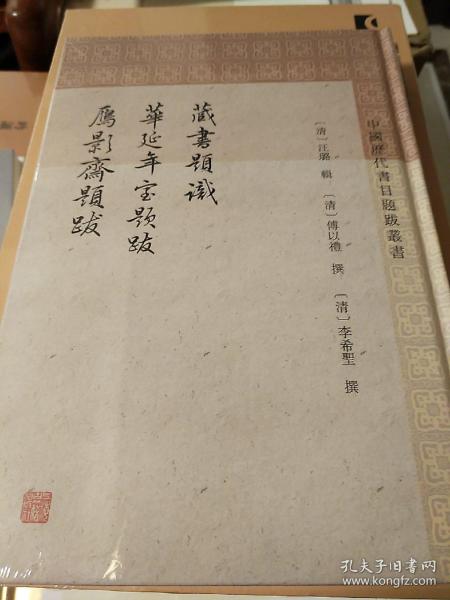 中國歷代書目題跋叢書
〔清〕汪璐 輯 〔清〕傅以禮 撰 〔清〕李希聖 撰
藏書題識
華延年室題跋
鴈影齋題跋
孔夫子旧书网
www.kongfz.com